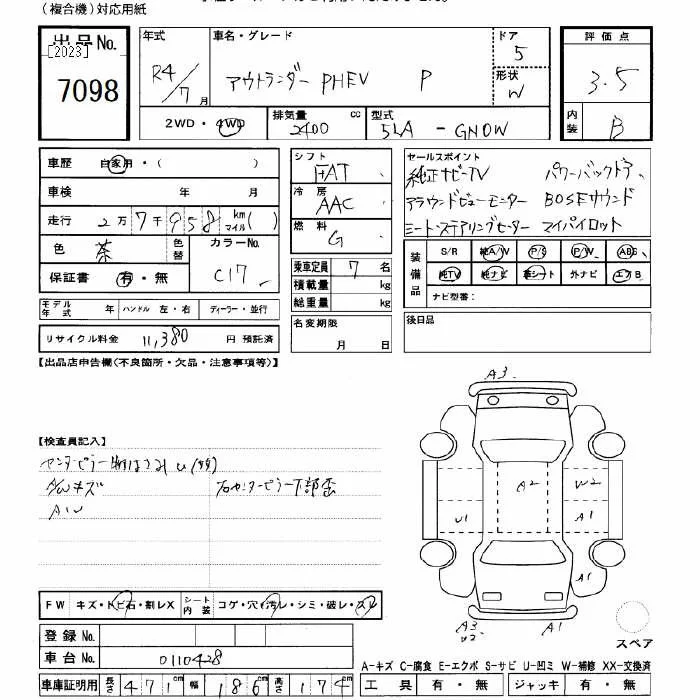 (複合機)対応用紙
出品No. [2023] 7098
年式 R4/7月
車名・グレード アウトランダー PHEV P
ドア 5
形状 W
評価点 3.5
内装 B
2WD・4WD
排気量 2400 cc
型式 5LA - GN0W
車歴 自家用・( )
車検 年 月
走行 2万7千958 km マイル ( )
色 茶 色替
カラーNo. C17
保証書 有・無
モデル年式 年 ハンドル 左・右 ディーラー・並行
リサイクル料金 11,380 円 預託済
シフト FAT
冷房 AAC
燃料 G
乗車定員 7 名
積載量 kg
総重量 kg
名変期限 月 日
セールスポイント
純正ナビ-TV パワーバックドア、
アラウンドビューモニター BOSEサウンド
ヒート・ステアリングヒーター マイパイロット
装備品 S/R 純A/W P/S P/W ABS
純TV 純ナビ 革シート 外ナビ エアB
ナビ型番:
後日品
【出品店申告欄(不良箇所・欠品・注意事項等)】
【検査員記入】
センターピラー
キズ 右センターピラー下部歪
AW
A3
A2 W2
U1 A1
A1
A3 A1
W2
スペア
FW キズ・トビ石・割レX シート内装 コゲ・穴・汚レ・シミ・破レ・スレ
登録No.
車台No. 0110428
車庫証明用 長さ 471cm 幅 186cm 高さ 174
A-キズ C-腐食 E-エクボ S-サビ U-凹ミ W-補修 XX-交換済
工具 有・無 ジャッキ 有・無